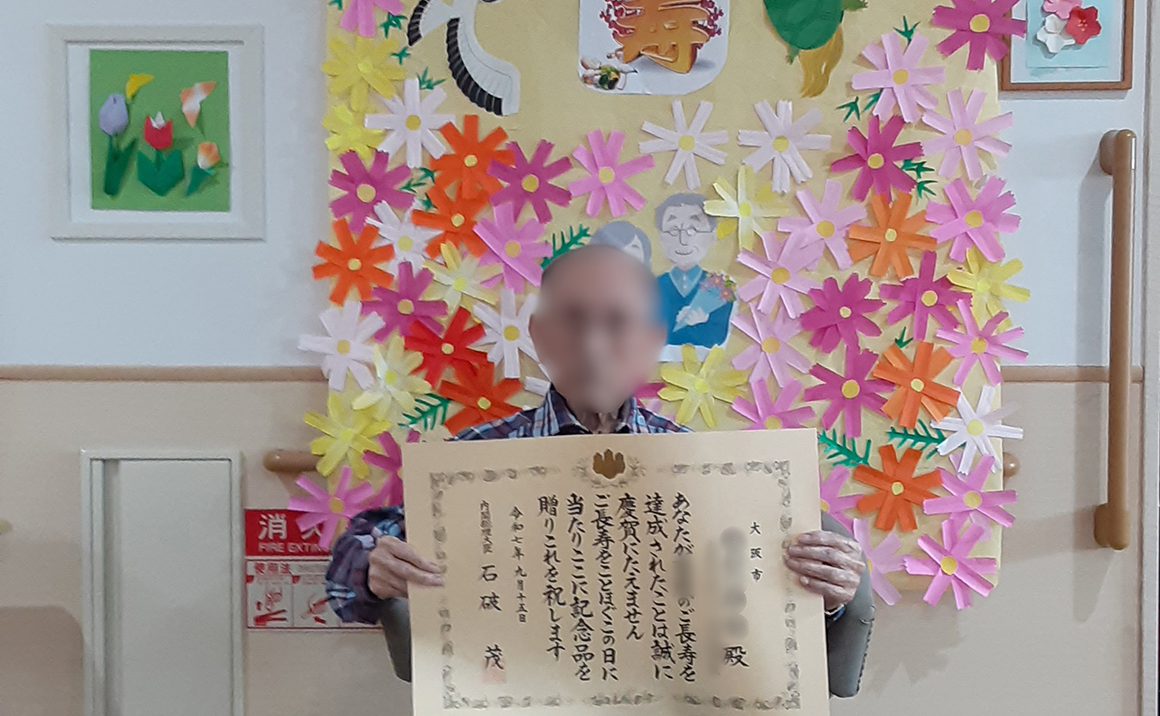 寿
大阪市
殿
あなたが
のご長寿を
達成されたことは誠に
慶賀にたえません
ご長寿をことほぐこの日に
当たりここに記念品を
贈りこれを祝します
令和七年九月十五日
内閣総理大臣 石破 茂
消火
FIRE EXTIN
使用法